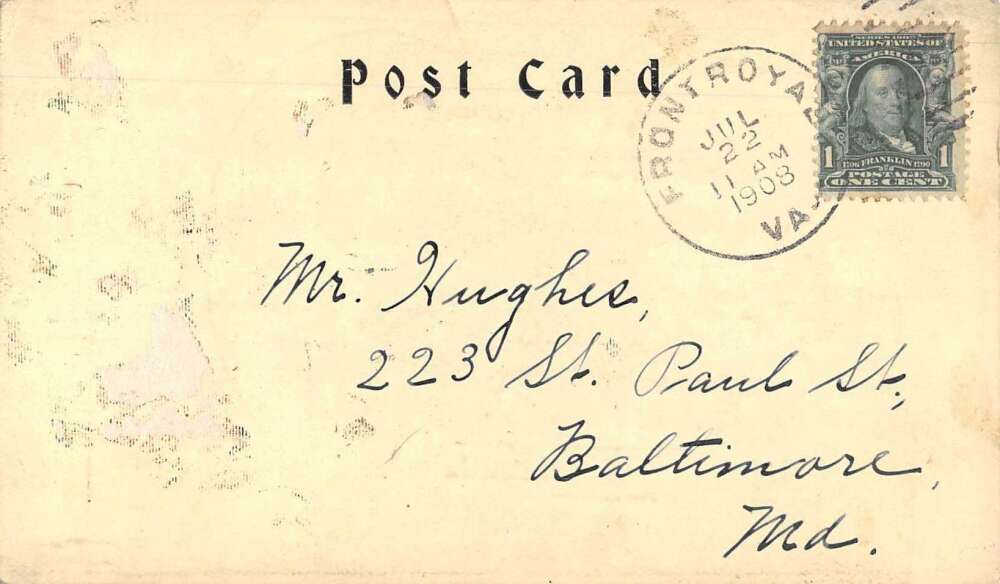 Post Card
FRONT ROYAL
JUL
22
11 AM
1908
VA.
SERIES 1902
UNITED STATES OF
AMERICA
1 1706 FRANKLIN 1790 1
POSTAGE
ONE CENT
Mr. Hughes,
223 St. Paul St.,
Baltimore,
Md.